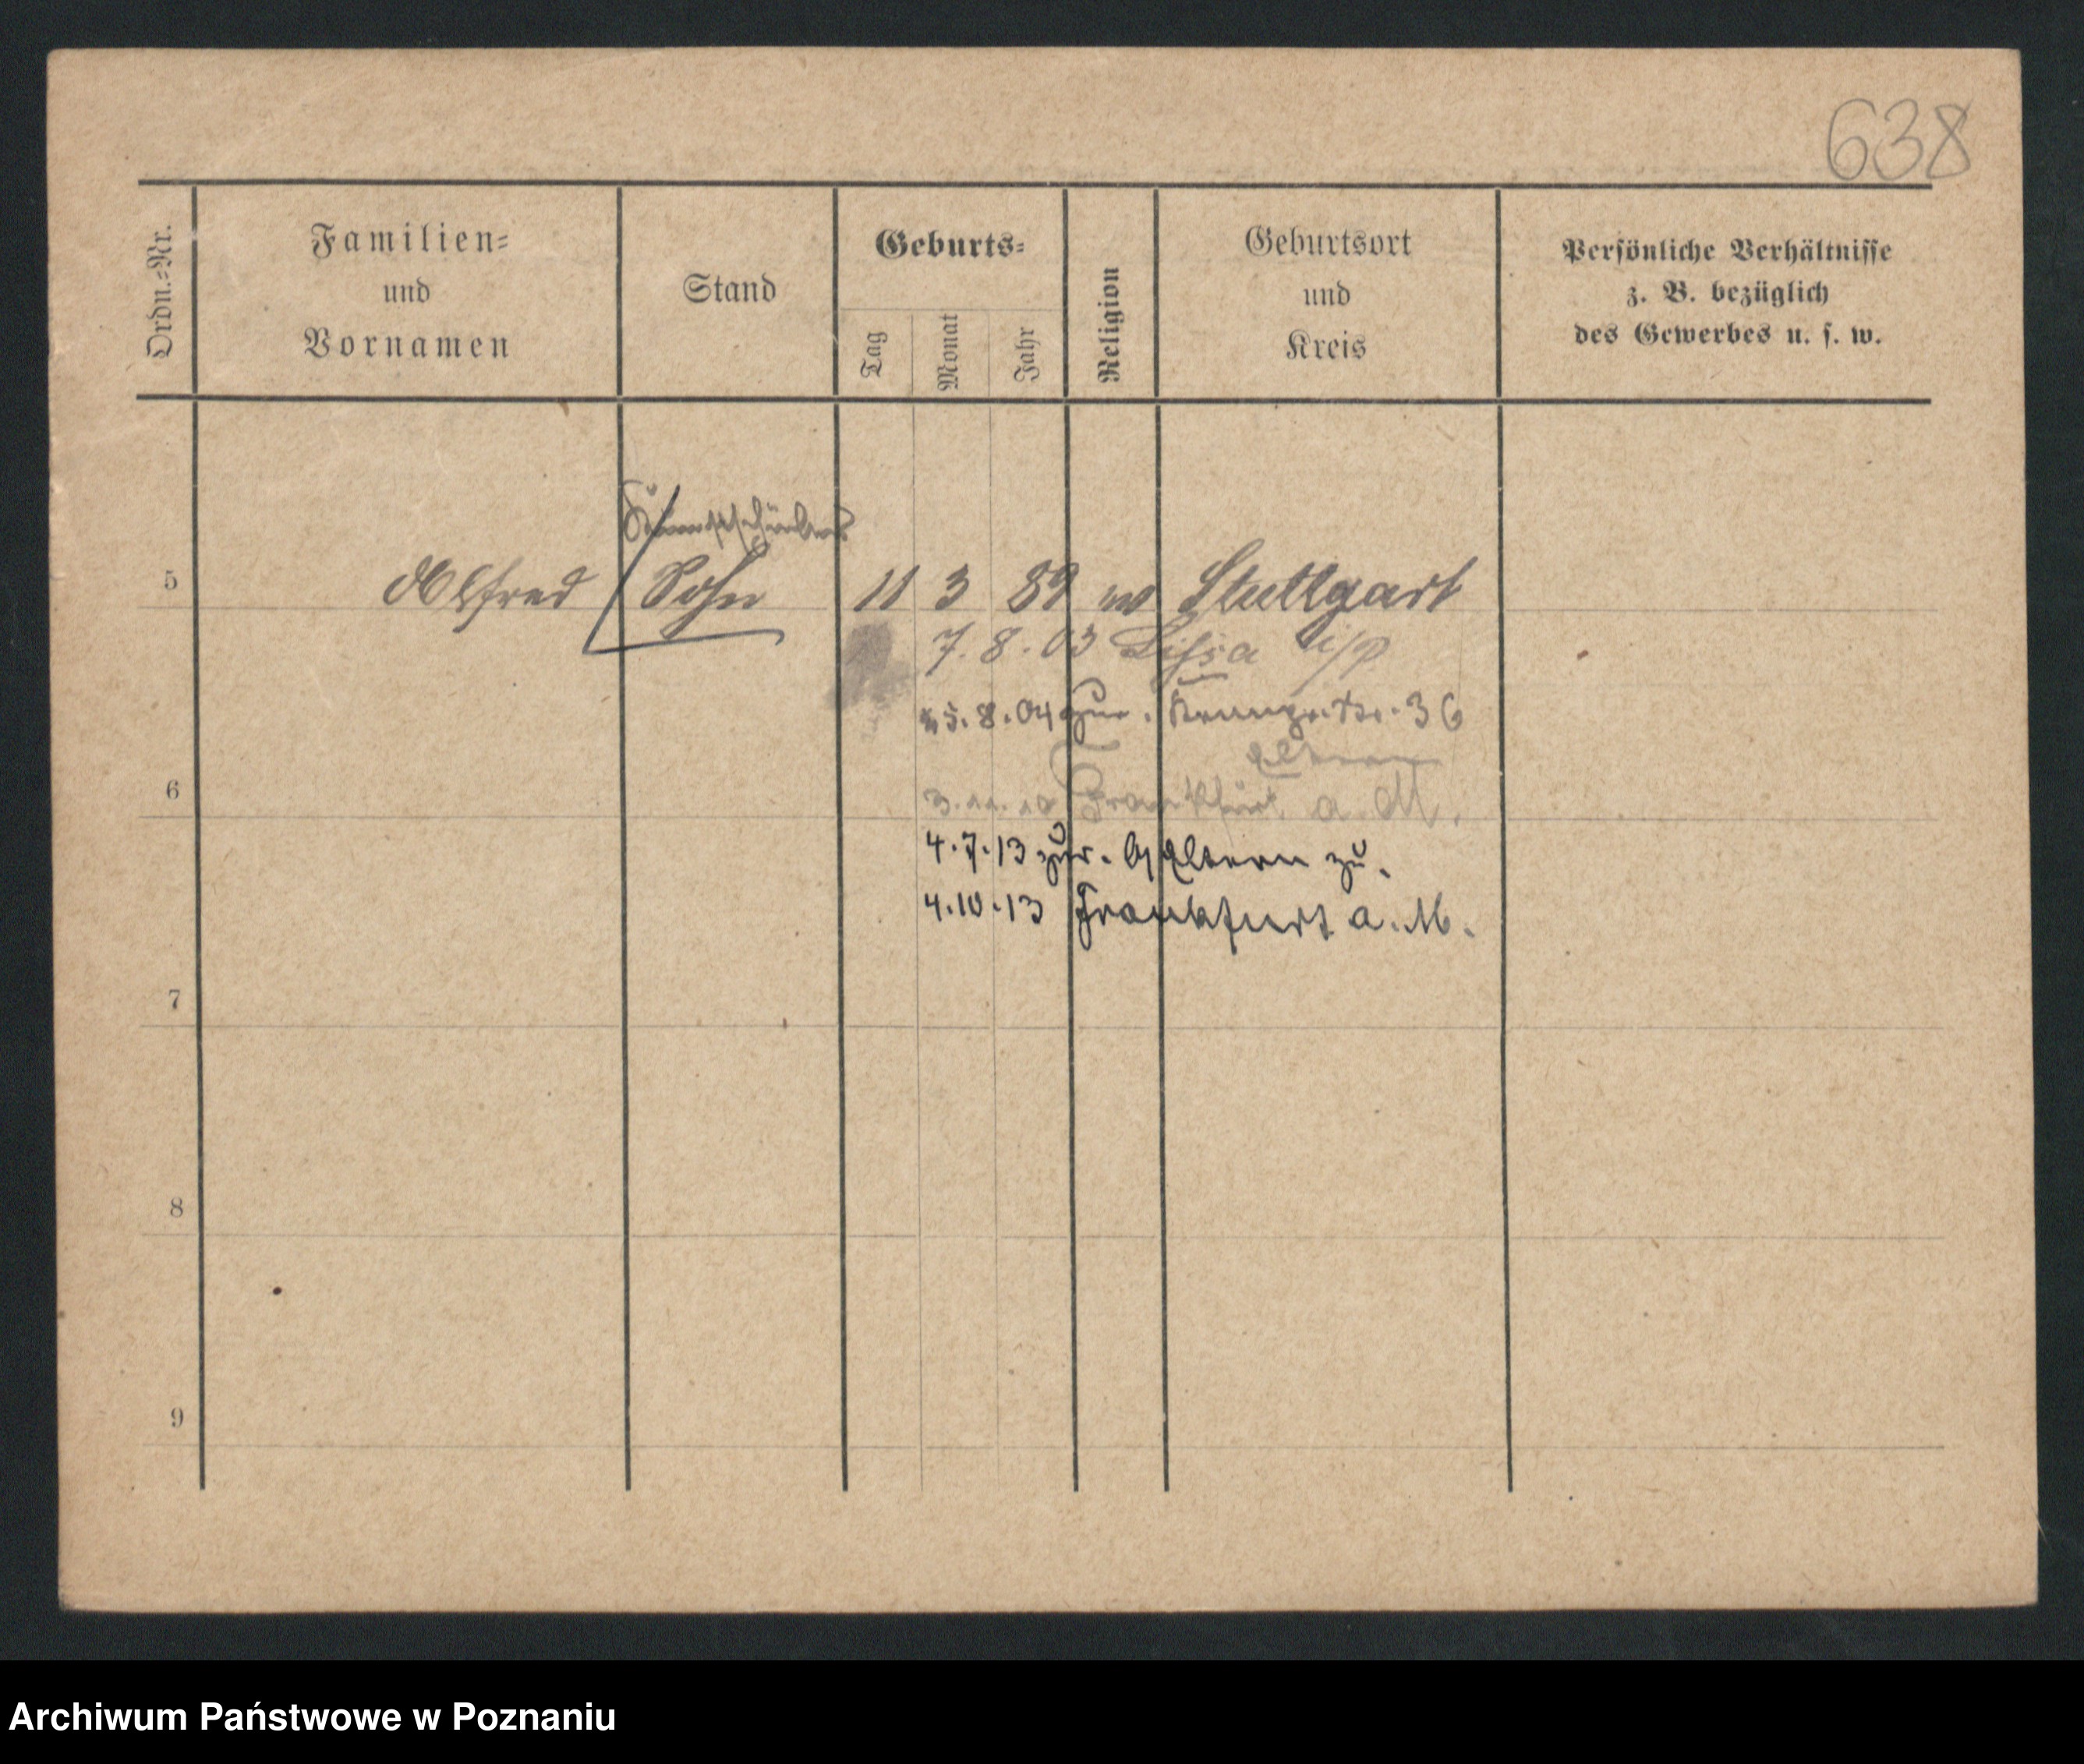 638
Ordn.=Nr.
Familien=
und
Vornamen
Stand
Geburts=
Tag
Monat
Jahr
Religion
Geburtsort
und
Kreis
Persönliche Verhältnisse
z. B. bezüglich
des Gewerbes u. s. w.
5 Alfred Sohn 11 3 89 Stuttgart
7.8.03 Lissa i/P
5.8.04 zur. 36
Eltern
6
3.11.10 Frankfurt a. M.
4.7.13 zur. Eltern zu.
4.10.13 Frankfurt a. M.
7
8
9
Archiwum Państwowe w Poznaniu